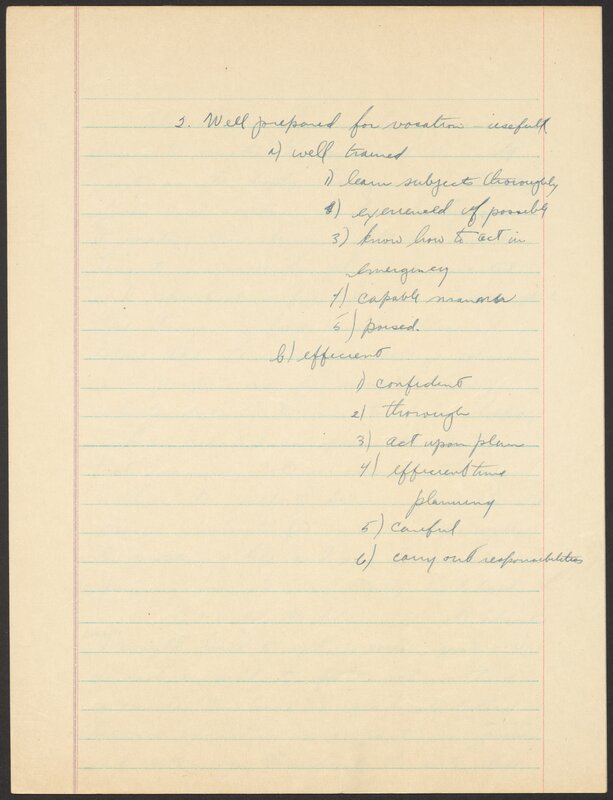 2. Well prepared for vocation usefull
a) well trained
1) learn subjects thoroughly
2) experienced if possible
3) know how to act in
emergency
4) capable manner
5) poised.
b) efficient
1) confident
2) thorough
3) act upon plan
4) efficient time
planning
5) careful
6) carry out responsibilities